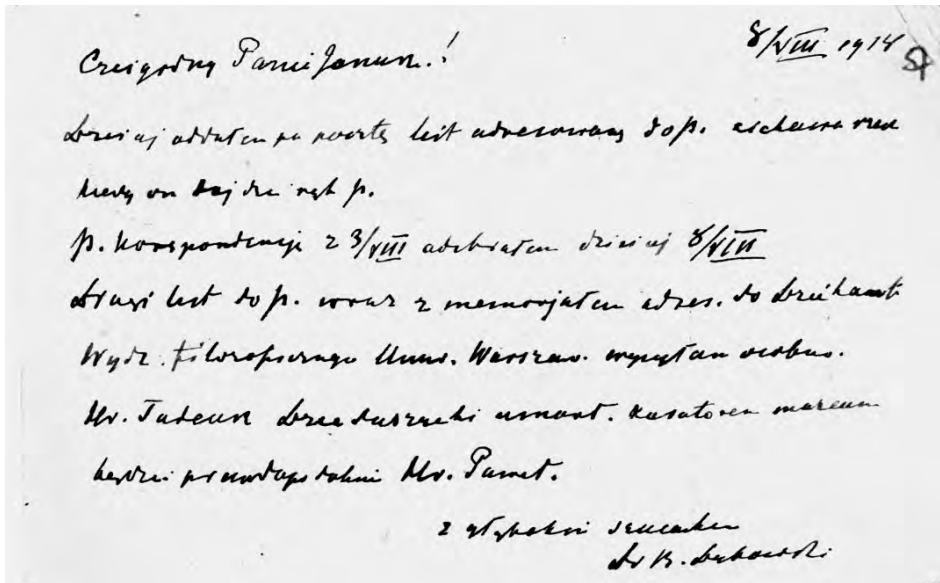 8/VIII 1918
57
Czcigodny Panie Januszu!
Dzisiaj oddałem na pocztę list adresowany do p.
kiedy on dojdzie rąk p.
P. Korespondencję z 3/VIII odebrałem dzisiaj 8/VIII
Drugi list do p. wraz z memorjałem adres. do Dziekanatu
Wydz. Filozoficznego Uniw. Warszaw. wysyłam osobno.
Hr. Tadeusz Dzieduszycki umarł. Kuratorem muzeum
będzie prawdopodobnie Hr. Paweł.
z głębokim szacunkiem
Dr B. Dybowski